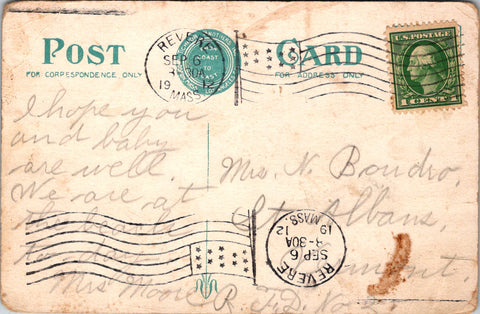 POST CARD
FOR CORRESPONDENCE ONLY
FOR ADDRESS ONLY
COAST
TO
COAST
REVERE
SEP 6
8-30A
1912
MASS.
U.S. POSTAGE
1 CENT 1
I hope you
and baby
are well.
We are at
the beach
to day
Mrs Moore
Mrs. N. Boudro,
St Albans,
Vermont,
R. F. D. No
REVERE
SEP 6
8-30A
1912
MASS.